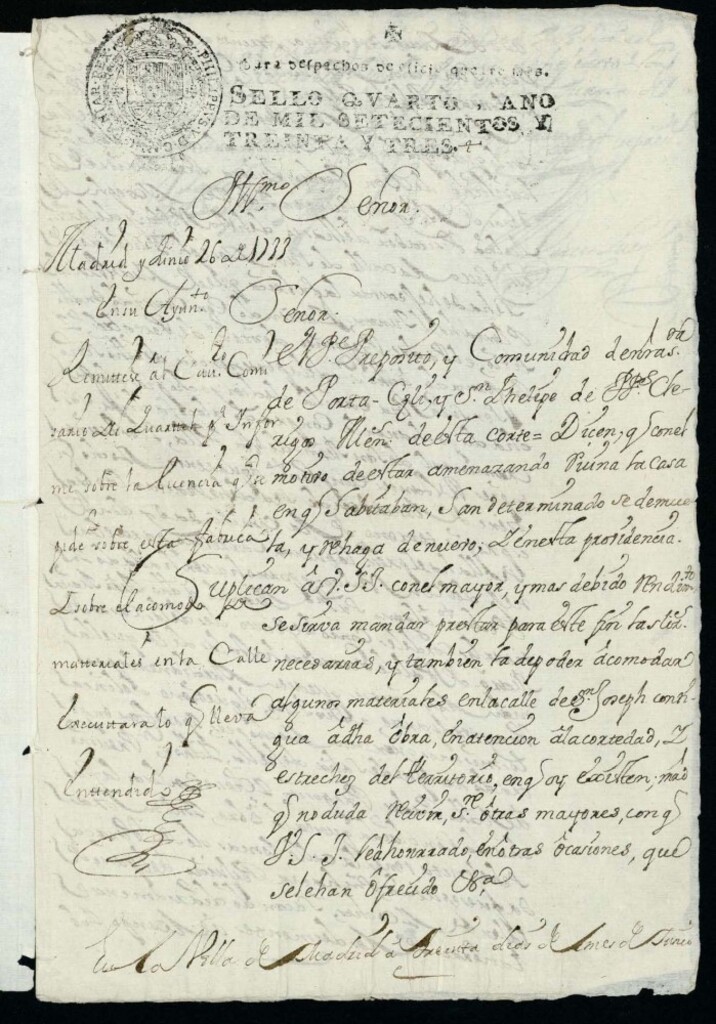 PHILIPPUS V D G
HISPANIAR REX
Para despachos de oficio quatro mrs.
SELLO QVARTO, AÑO
DE MIL SETECIENTOS Y
TREINTA Y TRES.
Illmo. Señor.
Madrid y Junio 26 de 1733
En su Ayunto.
Remittese al Cavo. Comi
sario del Quartel pa. q Infor
me sobre la licencia q se
pide sobre esta fabrica
Y sobre el acomodo de
matteriales en la Calle
Executtara lo q lleva
enttendido
Señor:
El Pe. Preposito, y Comunidad de nra. sra.
de Porta-Celi, y Sn. Phelipe de PPes. Cle-
rigos Men. de esta corte = Dicen, q con el
motivo de estar amenazando Ruina la casa
en q havitaban, han determinado se demue
la, y se haga de nuevo; Y en esta providencia.
Suplican â V.S.I. con el mayor, y mas debido Rendimto.
se serva mandar prestar para este fin las lizs.
necesarias, y tambien la de poder acomodar
algunos materiales en la calle de Sn. Joseph conti-
gua â dha ôbra, en atencion â la cortedad, Y
estrechez del territorio, en q oy existen; mrd
q no duda Recivir, Sre. ôtras mayores, con q
V.S.I. le â honrrado, en ôtras ôcasiones, que
se le han ôfrecido &a.
En la Villa de Madrid a treinta dias de el mes de Junio